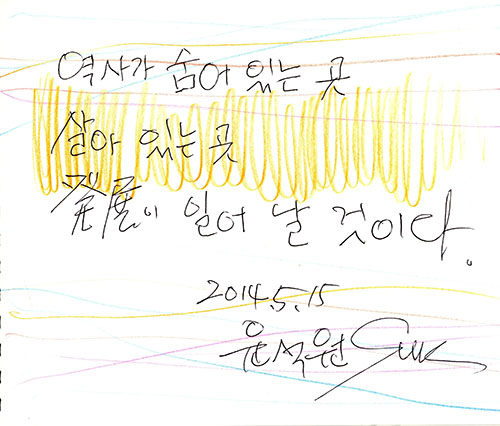 역사가 숨어 있는 곳
살아 있는 곳
発展이 일어 날 것이다.
2014.5.15
윤석원 Suk